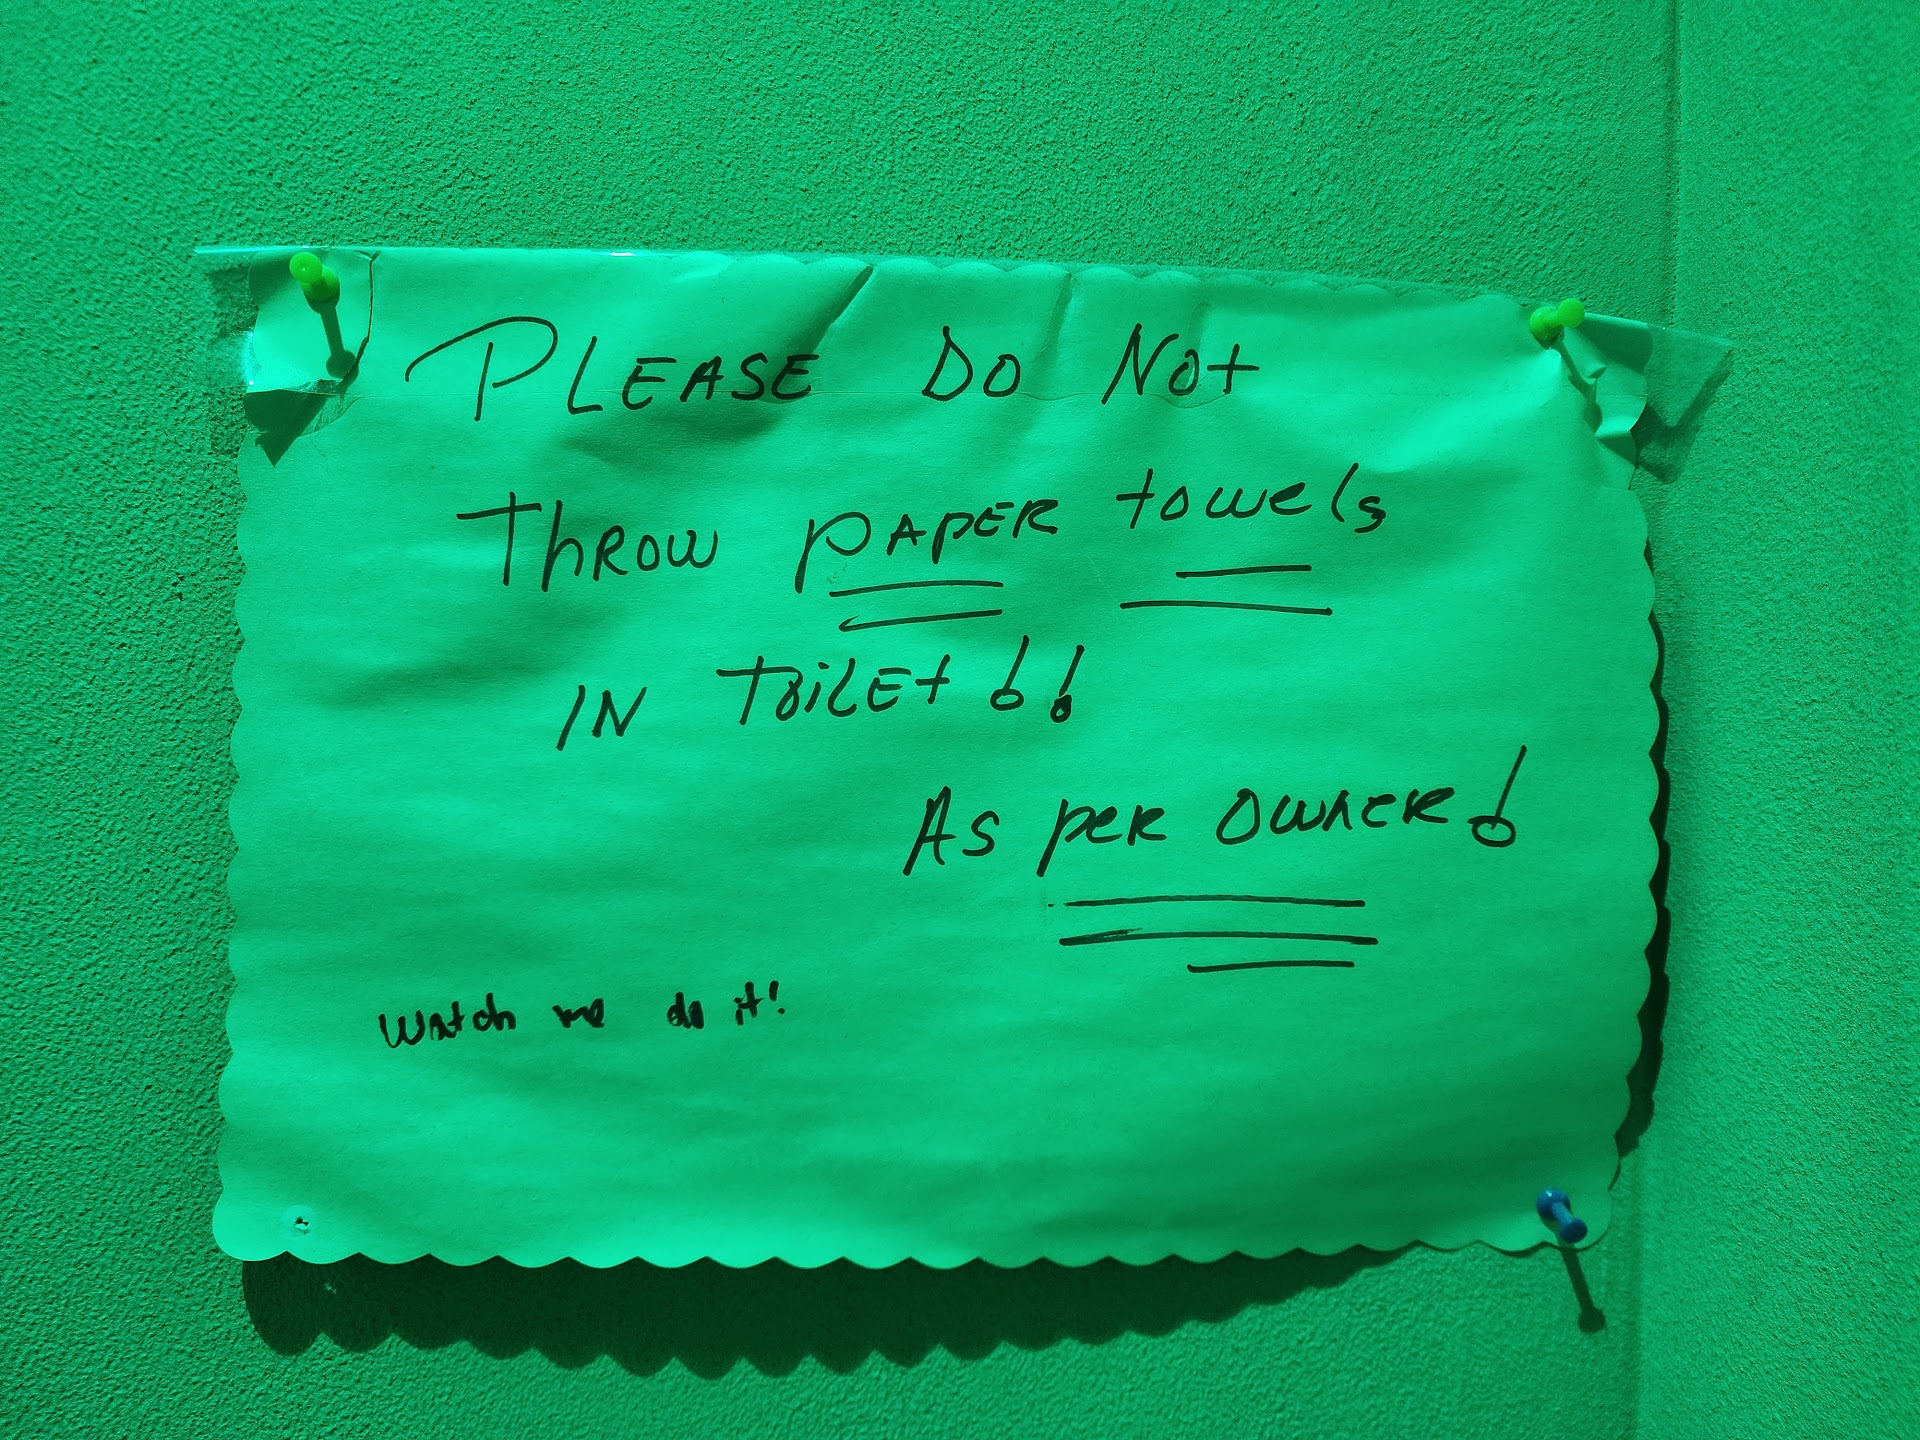 PLEASE DO NOt
ThROW pAPER towels
IN TOiLEt!!
As peR OWNER!
Watch me do it!